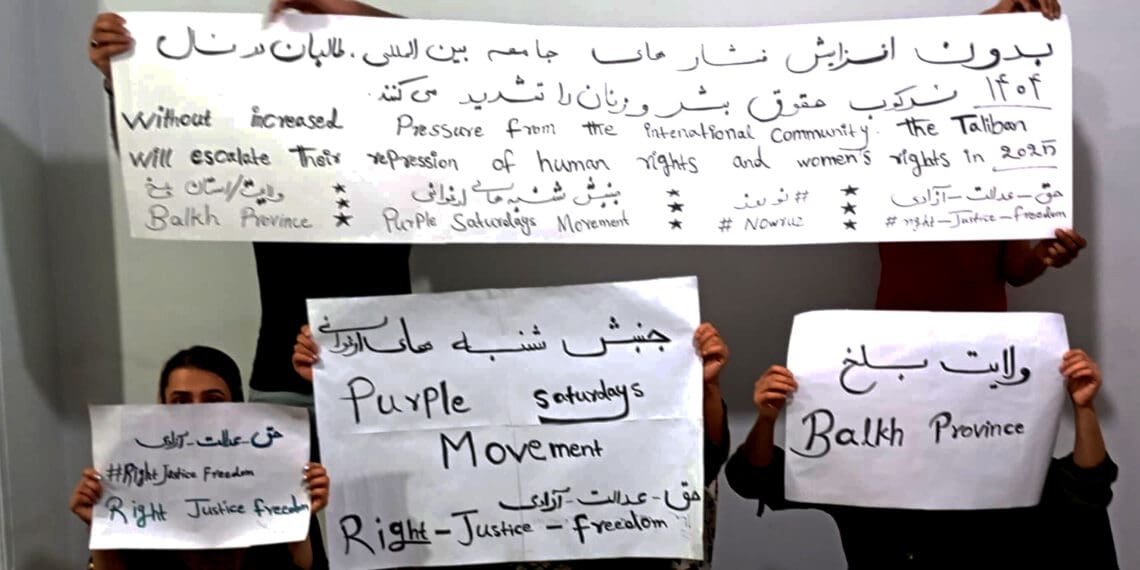 بدون افزایش فشار های جامعه بین المللی، طالبان در سال
۱۴۰۴ سرکوب حقوق بشر و زنان را تشدید می کنند.
Without increased Pressure from the intenational Community. the Taliban
will escalate Their repression of human rights and women's rights in 2025
ولایت/استان بلخ ★ جنبش شنبه های ارغوانی ★ #نوروز ★ حق-عدالت-آزادی
Balkh Province ★ Purple Saturdays Movement ★ # Nowruz ★ #right-Justice-freedom
جنبش شنبه های ارغوانی
Purple Saturdays
Movement
حق-عدالت-آزادی
Right-Justice-freedom
ولایت بلخ
Balkh Province
حق-عدالت-آزادی
#Right Justice Freedom
Right Justice freedom